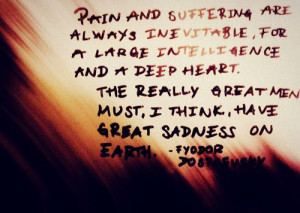 PAIN AND SUFFERING ARE
ALWAYS INEVITABLE, FOR
A LARGE INTELLIGENCE
AND A DEEP HEART.
THE REALLY GREAT MEN
MUST, I THINK, HAVE
GREAT SADNESS ON
EARTH. -FYODOR
DOSTOEVSKY